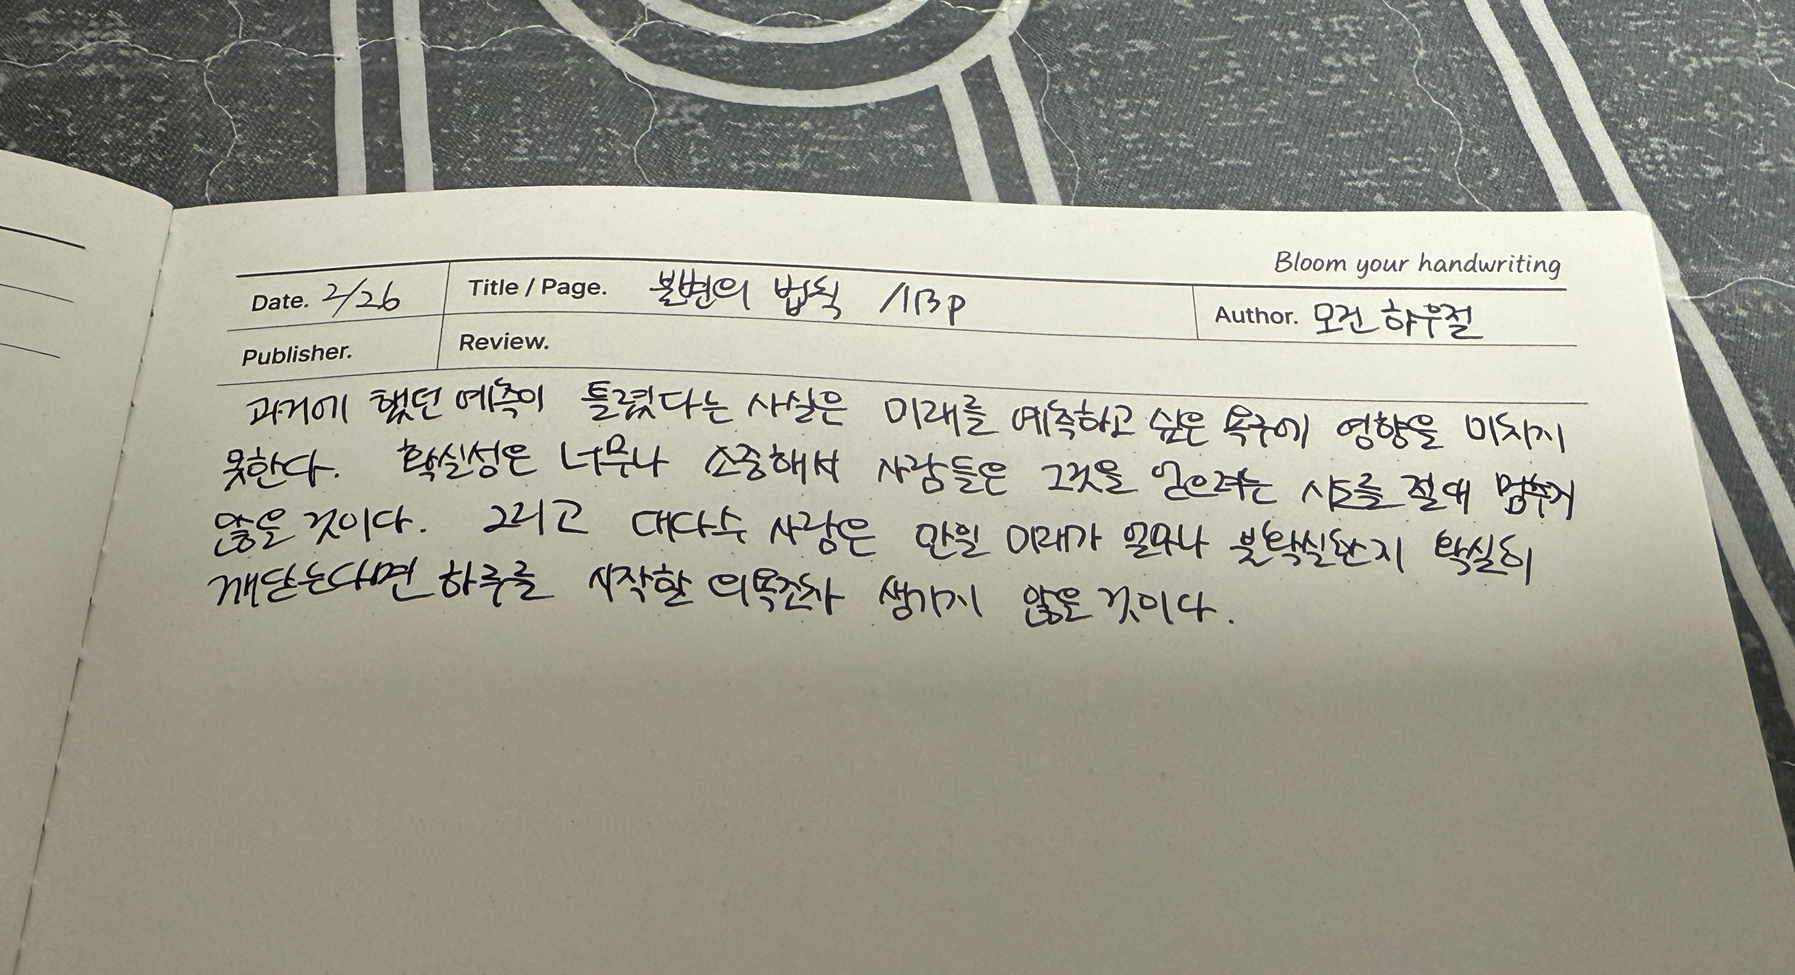 Bloom your handwriting
Date. 2/26 Title / Page. 불변의 법칙 /113p Author. 모건 하우절
Publisher. Review.
과거에 했던 예측이 틀렸다는 사실은 미래를 예측하고 싶은 욕구에 영향을 미치지
못한다. 확실성은 너무나 소중해서 사람들은 그것을 얻으려는 시도를 절대 멈추지
않을 것이다. 그리고 대다수 사람은 만일 미래가 얼마나 불확실한지 확실히
깨닫는다면 하루를 시작할 의욕조차 생기지 않을 것이다.